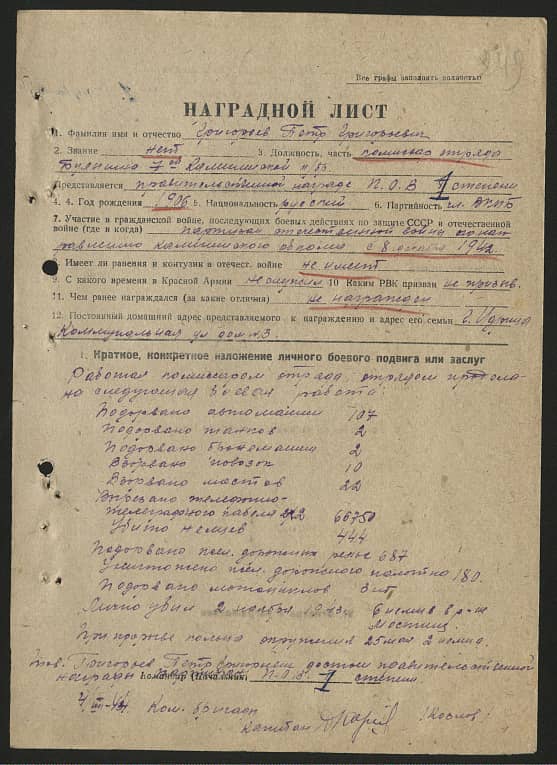 Все графы заполнять полностью
НАГРАДНОЙ ЛИСТ
1. Фамилия имя и отчество Григорьев Петр Григорьевич
2. Звание нет 3. Должность, часть комиссар отряда
Представляется правительственной награде П.О.В I степени
4. 4. Год рождения 1906 5. Национальность русский 6. Партийность чл. ВКПБ
7. Участие в гражданской войне, последующих боевых действиях по защите СССР и отечественной
войне (где и когда) партизан отечественной войны по нап
равлению района с 8 1942
8. Имеет ли ранения и контузии в отечест. войне не имеет
9. С какого времени в Красной Армии не служил 10 Каким РВК призван не призыв.
11. Чем ранее награждался (за какие отличия) не награжден
12. Постоянный домашний адрес представляемого к награждению и адрес его семьи г. Идрица
Коммунальная ул дом №3.
1. Краткое, конкретное изложение личного боевого подвига или заслуг
Работая комиссаром отряда, отрядом
на следующая боевая работа:
Подорвано автомашин 107
Подорвано танков 2
Подорвано бронемашин 2
Взорвано повозок 10
Взорвано мостов 22
Вырезано
телеграфного кабеля 66750
Убито немцев 444
Подорвано жел. дорожных рельс 687
Уничтожено жел. дорожного полотна 180.
Подорвано мотоциклов 3 шт.
Лично убил 2 ноября 1943 6 немцев в р-не
При прорыве кольца окружения 25 мая 2 немца.
тов. Григорьев Петр Григорьевич достоин правительственной
награды П.О.В. I степени
Командир (Начальник)
Ком. бригады
капитан (Козлов)